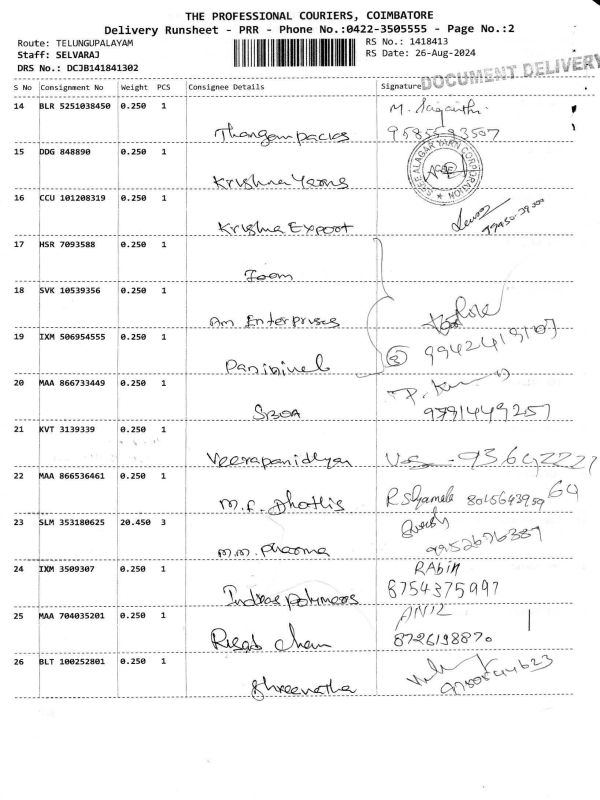 THE PROFESSIONAL COURIERS, COIMBATORE
Delivery Runsheet - PRR - Phone No.:0422-3505555 - Page No.:2
Route: TELUNGUPALAYAM
RS No.: 1418413
Staff: SELVARAJ
RS Date: 26-Aug-2024
DRS No.: DCJB141841302
DOCUMENT DELIVERY
S No Consignment No Weight PCS Consignee Details Signature
14 BLR 5251038450 0.250 1
15 DDG 848890 0.250 1
SREE ALAGAR YARN CORPORATION
Krishna Yarns
16 CCU 101208319 0.250 1
Krishna Export
17 HSR 7093588 0.250 1
Zoom
18 SVK 10539356 0.250 1
Am Enterprises
19 IXM 506954555 0.250 1
3 9942419107
20 MAA 866733449 0.250 1
SBOA 9791449257
21 KVT 3139339 0.250 1
22 MAA 866536461 0.250 1
R Shyamala
23 SLM 353180625 20.450 3
M.M. Pharma 9952676387
24 IXM 3509307 0.250 1
RABIN
8754375997
25 MAA 704035201 0.250 1
ANIL
8726198870
26 BLT 100252801 0.250 1
Shreenatha